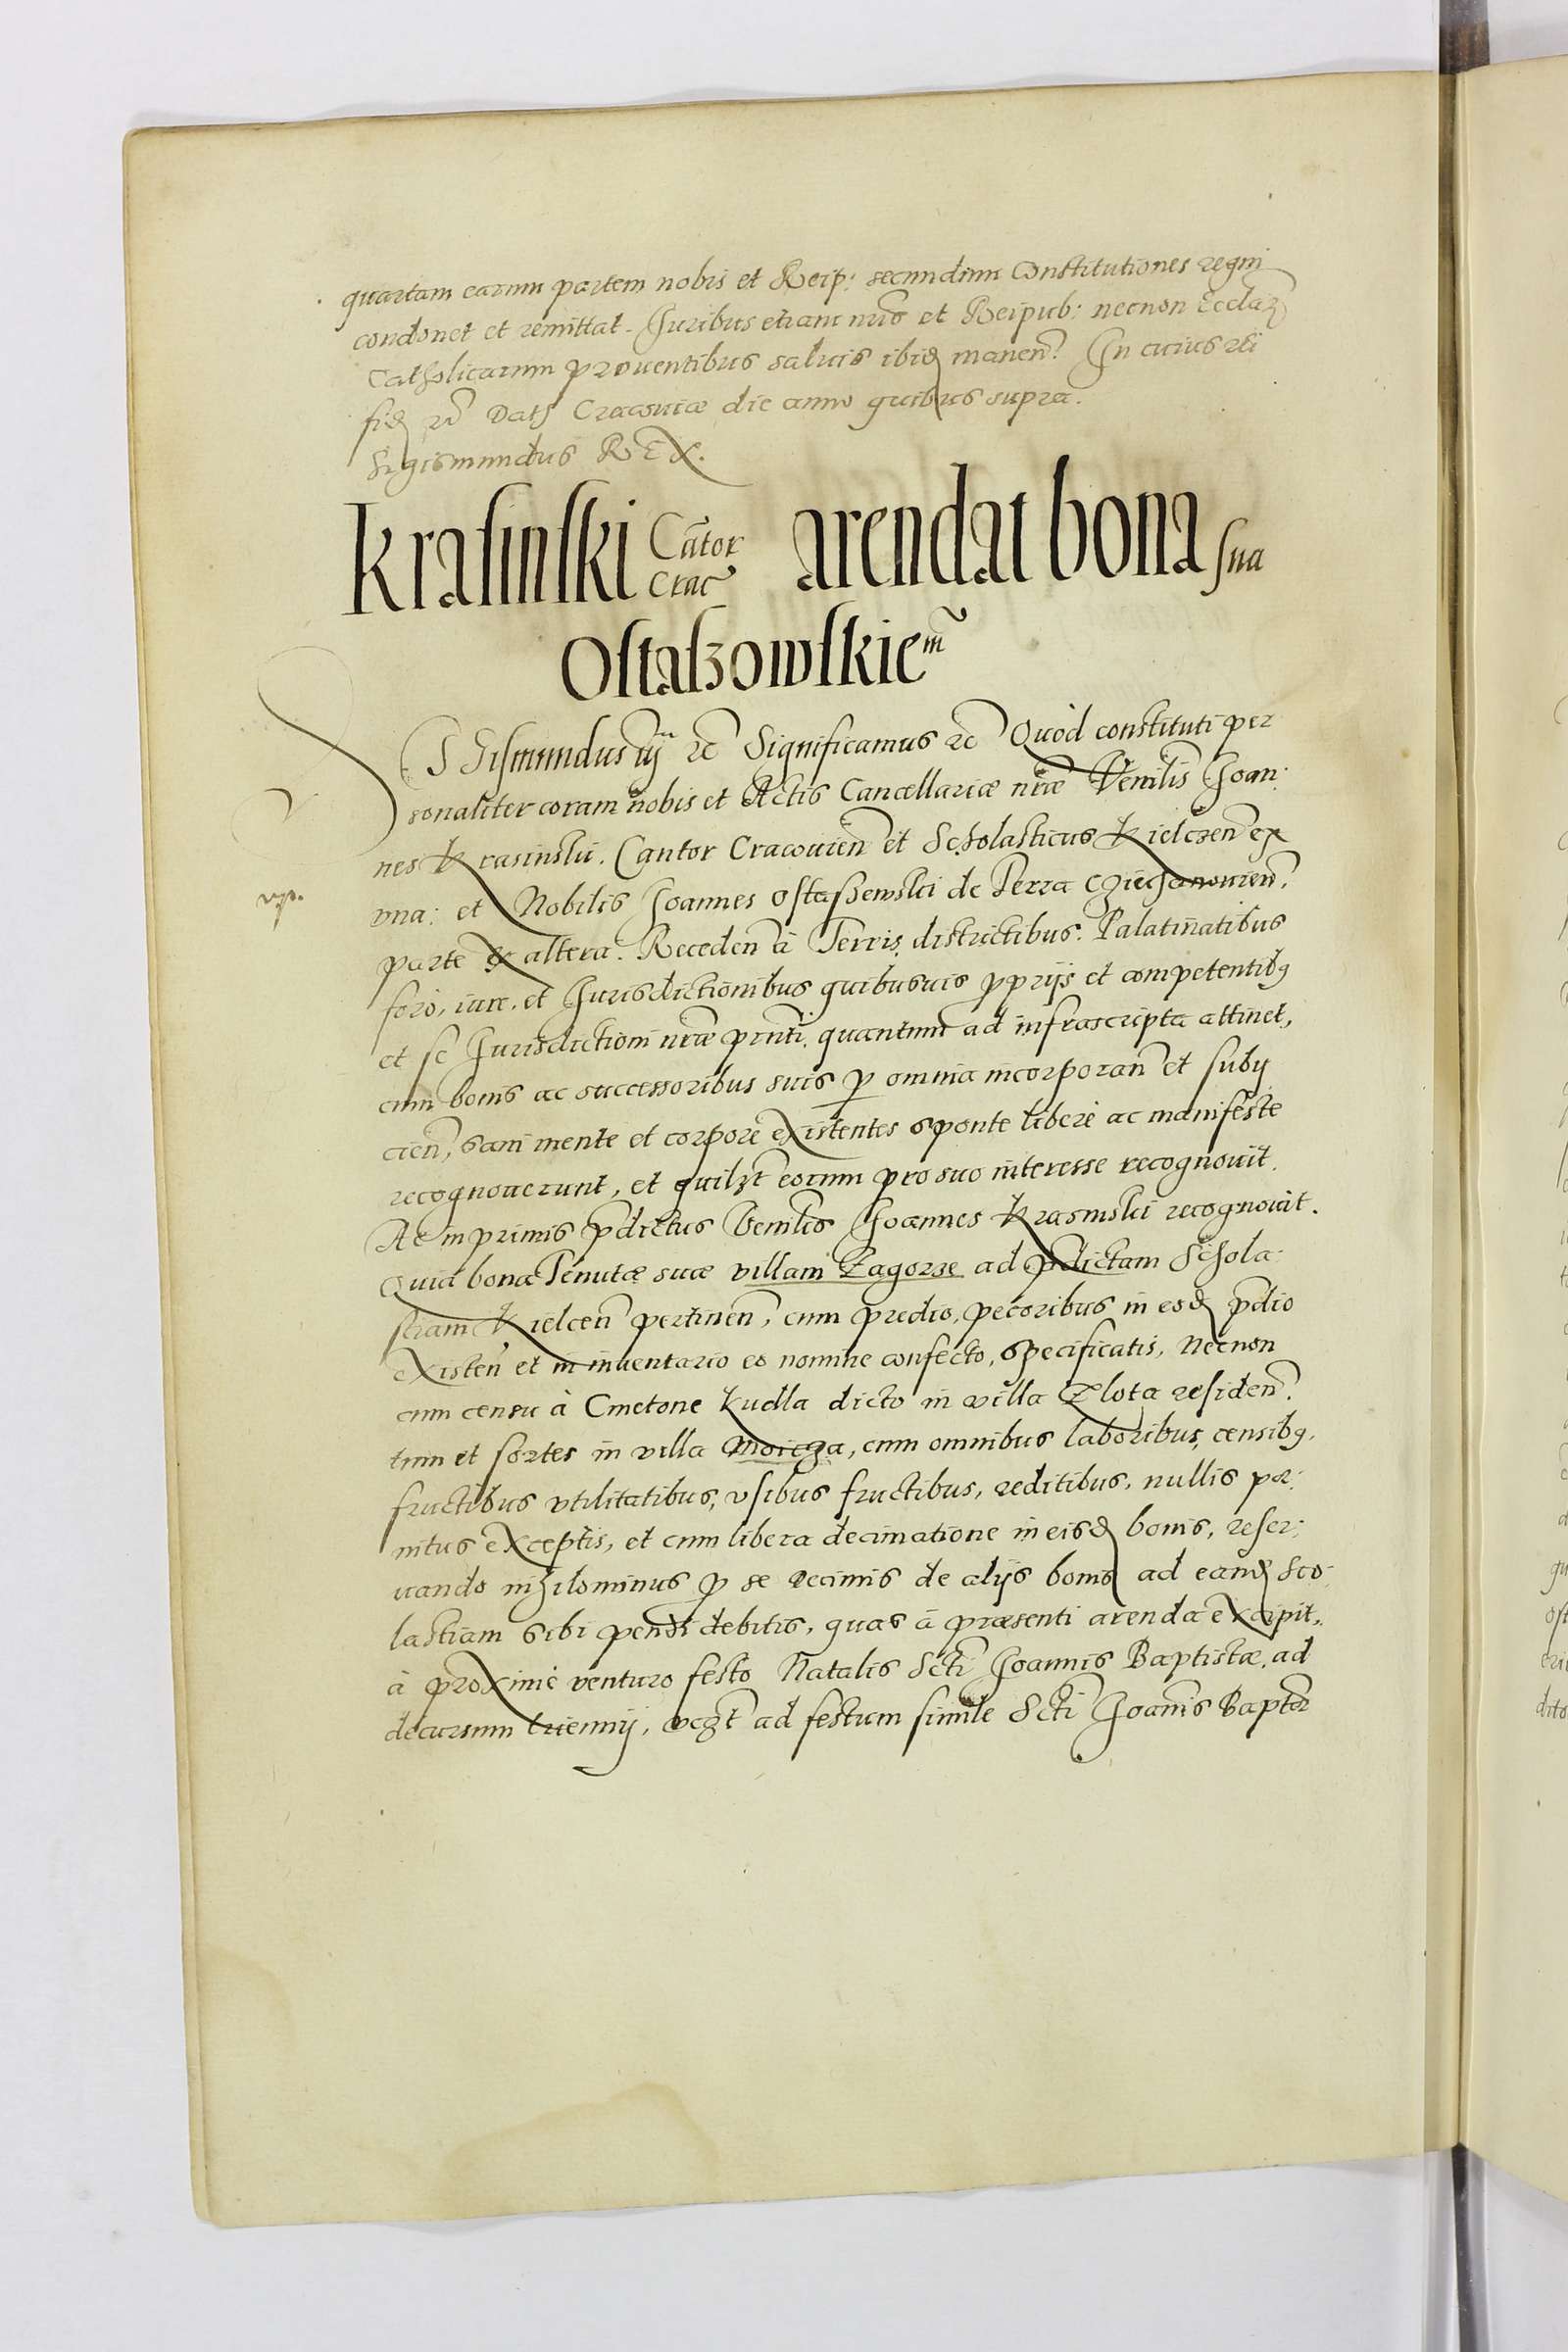 quartam earum partem nobis et Reip: secundum Constitutiones regni
condonet et remittat. Iuribus etiam nris et Reipub: necnon Ecclar
Catholicarum prouentibus saluis ibid manen. In cuius rei
fid rc Dat Cracouiæ die anno quibus supra.
Sigismundus REX.
Krasinski Cator Crac arendat bona sua
Ostaszowskiem
SIGismundus iij rc Significamus rc Quòd constituti per
sonaliter coram nobis et Actis Cancellariæ nræ Venilis Ioan:
nes Krasinski. Cantor Cracouien et Scholasticus Kielczen ex
vna: et Nobilis Ioannes Ostaszewski de Terra Cziechanouien.
parte ex altera. Receden à Terris, districtibus. Palatinatibus
foro, iure, et Iurisdictionibus quibusuis pprijs et competentibq
et se Iurisdictioni nræ pnti. quantum ad infrascripta attinet,
cum bonis ac successoribus suis p omnia incorporan et subij
cien, sani mente et corpore existentes sponte libere ac manifeste
recognouerunt, et quilzt eorum pro suo interesse recognouit.
Ac inprimis pdictus Venilis Ioannes Krasinski recognouit.
Quia bona Tenutæ suæ villam Zagorze ad pdictam Schola:
striam Kielcen pertinen, cum predio, pecoribus in eod pdio
existen et in inuentario eo nomine confecto, specificatis, Necnon
cum censu à Cmetone Kudla dicto in villa Zlota residen.
tum et sortes in villa Moicza, cum omnibus laboribus, censibq,
fructibus vtilitatibus, vsibus fructibus, reditibus, nullis pœ:
nitus exceptis, et cum libera decimatione in eisd bonis, reser:
uando nihilominus p se Decimis de alijs bonis ad eand Sco:
lastriam sibi pendi debitis, quas à præsenti arenda excipit,
à proximè venturo festo Natalis Scti Ioannis Baptistæ. ad
decursum triennij, vczt ad festum simile Scti Ioanis Baptæ